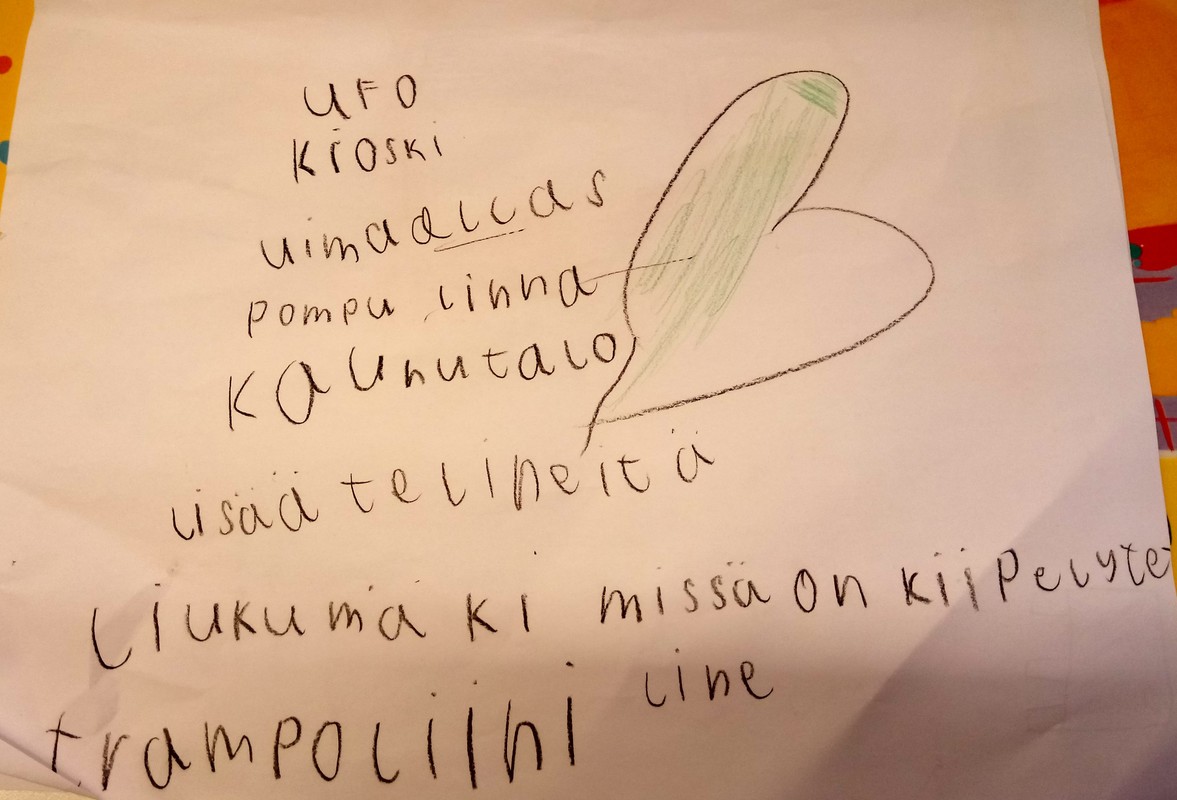 UFO
KiOSKi
uimaallas
pompu linna
KAUhutalo
lisää telineitä
liukumäki missä on kiipelyte
line
trampoliini